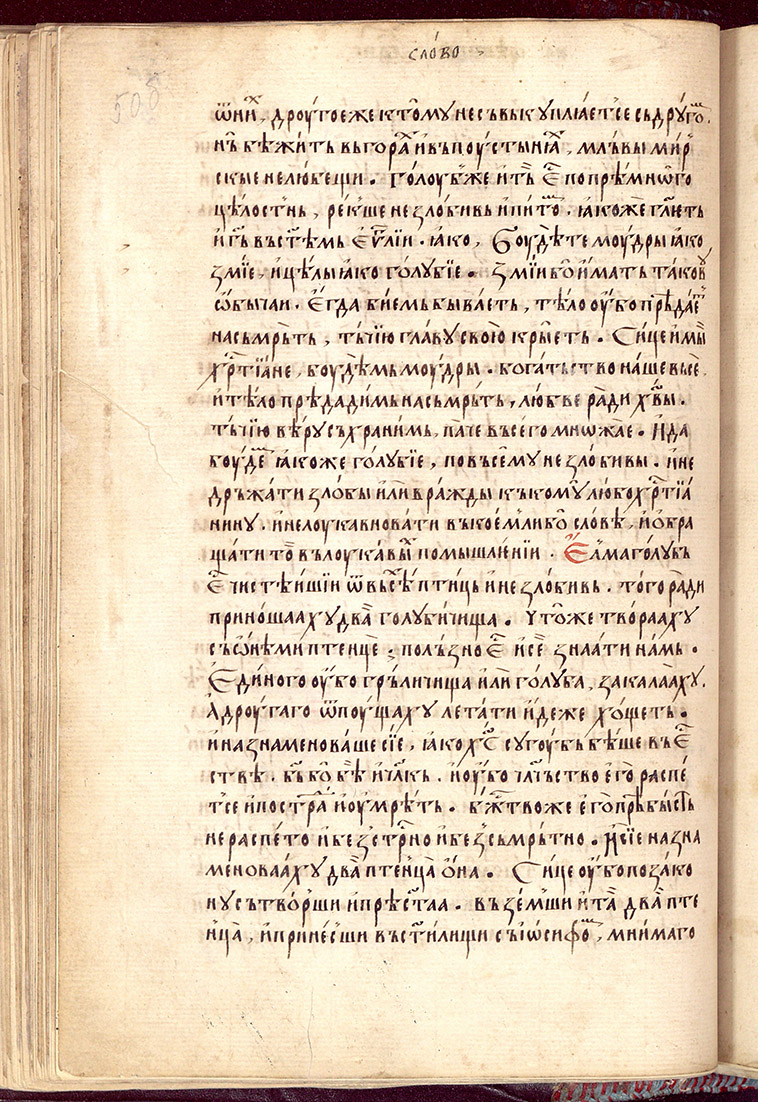 сло́во
508
ѿни́хⷯ, дроуго́еже ктому̀ не съвькупла́етсе съдру́гоⷨ.
нѡ̀ бѣжи́ть въго́раⷯ и҆въпоусты́нꙗⷯ, мль́вы миⷬ҇
скые нелю́бещи. го́лоубⷤже и҆тъ̀ є҆ⷭ҇ попрѣ́мнѡго
цѣ́лостⷩь, ре́кше незло́бивь и҆пи́тоⷨ. ꙗ҆коже гл҃еть
и҆гь҃ въст҃ѣмь є҆ѵⷢ҇лїи. ꙗ҆ко, боуⷣѣте моу́дры ꙗ҆ко
змїе, и҆цѣ́лы ꙗ҆ко го́лубїе. змїи́ бо и҆мать тако́в
ѡ҆бы́чаи. є҆гда бїемь быва́еть, тѣ́ло оу҆бо прѣ́даеⷮ
насьмрь́ть, тъ́чїю гла́ву свою̀ кры́еть. Си́це и҆мы̀
хрⷭ҇тїа́не, боудѣмь моу́дры. бога́тьство на́ше высѐ
и҆тѣ́ло прѣдади́мь насьмрь́ть, любве ра́ди хв҃ы.
тъ́чїю вѣ́ру съхрани́мь, па́че въсего̀ мнѡ́жае. И҆да
боу́деⷨ ꙗ҆коже го́лубїе, повъсе́му незло́бивы. и҆не
дрьжа́ти зло́бы и҆лѝ вражды̀ къкому̀любо хрⷭ҇тїа́
нину. и҆нелоука́вновати въкое́млибо сло́вѣ, и҆ѡ҆бра
ща́ти то̀ вълоука́выⷯ помышле́нїи. Е҆лма го́лубь
є҆ⷭ҇ чистѣ́ишїи ѿвъсѣⷯ пти́ць и҆незло́бивь. того̀ ра́ди
прино́шааху два̀ голуби́чища. Ꙋ҆то́же тво́рааху
съѡ҆нѣ́ми птенцѐ. пол́ьзно є҆ⷭ҇ и҆сѐ зна́ати на́мь.
Е҆ди́ного оу҆бо грьли́чища и҆лѝ го́луба, закала́аху.
А҆дроуга́го ѿпоуща́ху лета́ти и҆деже хо́щеть.
и҆назнаменова́ше сїе, ꙗ҆ко хⷭ҇ сугоу́бь бѣ́ше въе҆ⷭ҇
ствѣ. бь҃ бо бѣ̀ и҆чл҃кь. и҆оу҆бо чл҃чьство е҆го̀ распе́
тсе и҆постраⷣ и҆оу҆мрѣ́ть. бжⷭ҇твоже е҆го̀ прѣбы́сть
нераспе́то и҆беⷥстрⷭ҇но и҆беⷥсьмрь́тно. И҆сїе назна
менова́аху два̀ птенца̀ ѻ҆на. Си́це оу҆бо позако́
ну сътво́рши и҆прѣ́стⷭ҇аа. възе́мши и҆та̀ два̀ пте
нца, и҆прине́сши въст҃и́лищи съїѡ́сифоⷨ, мни́маго